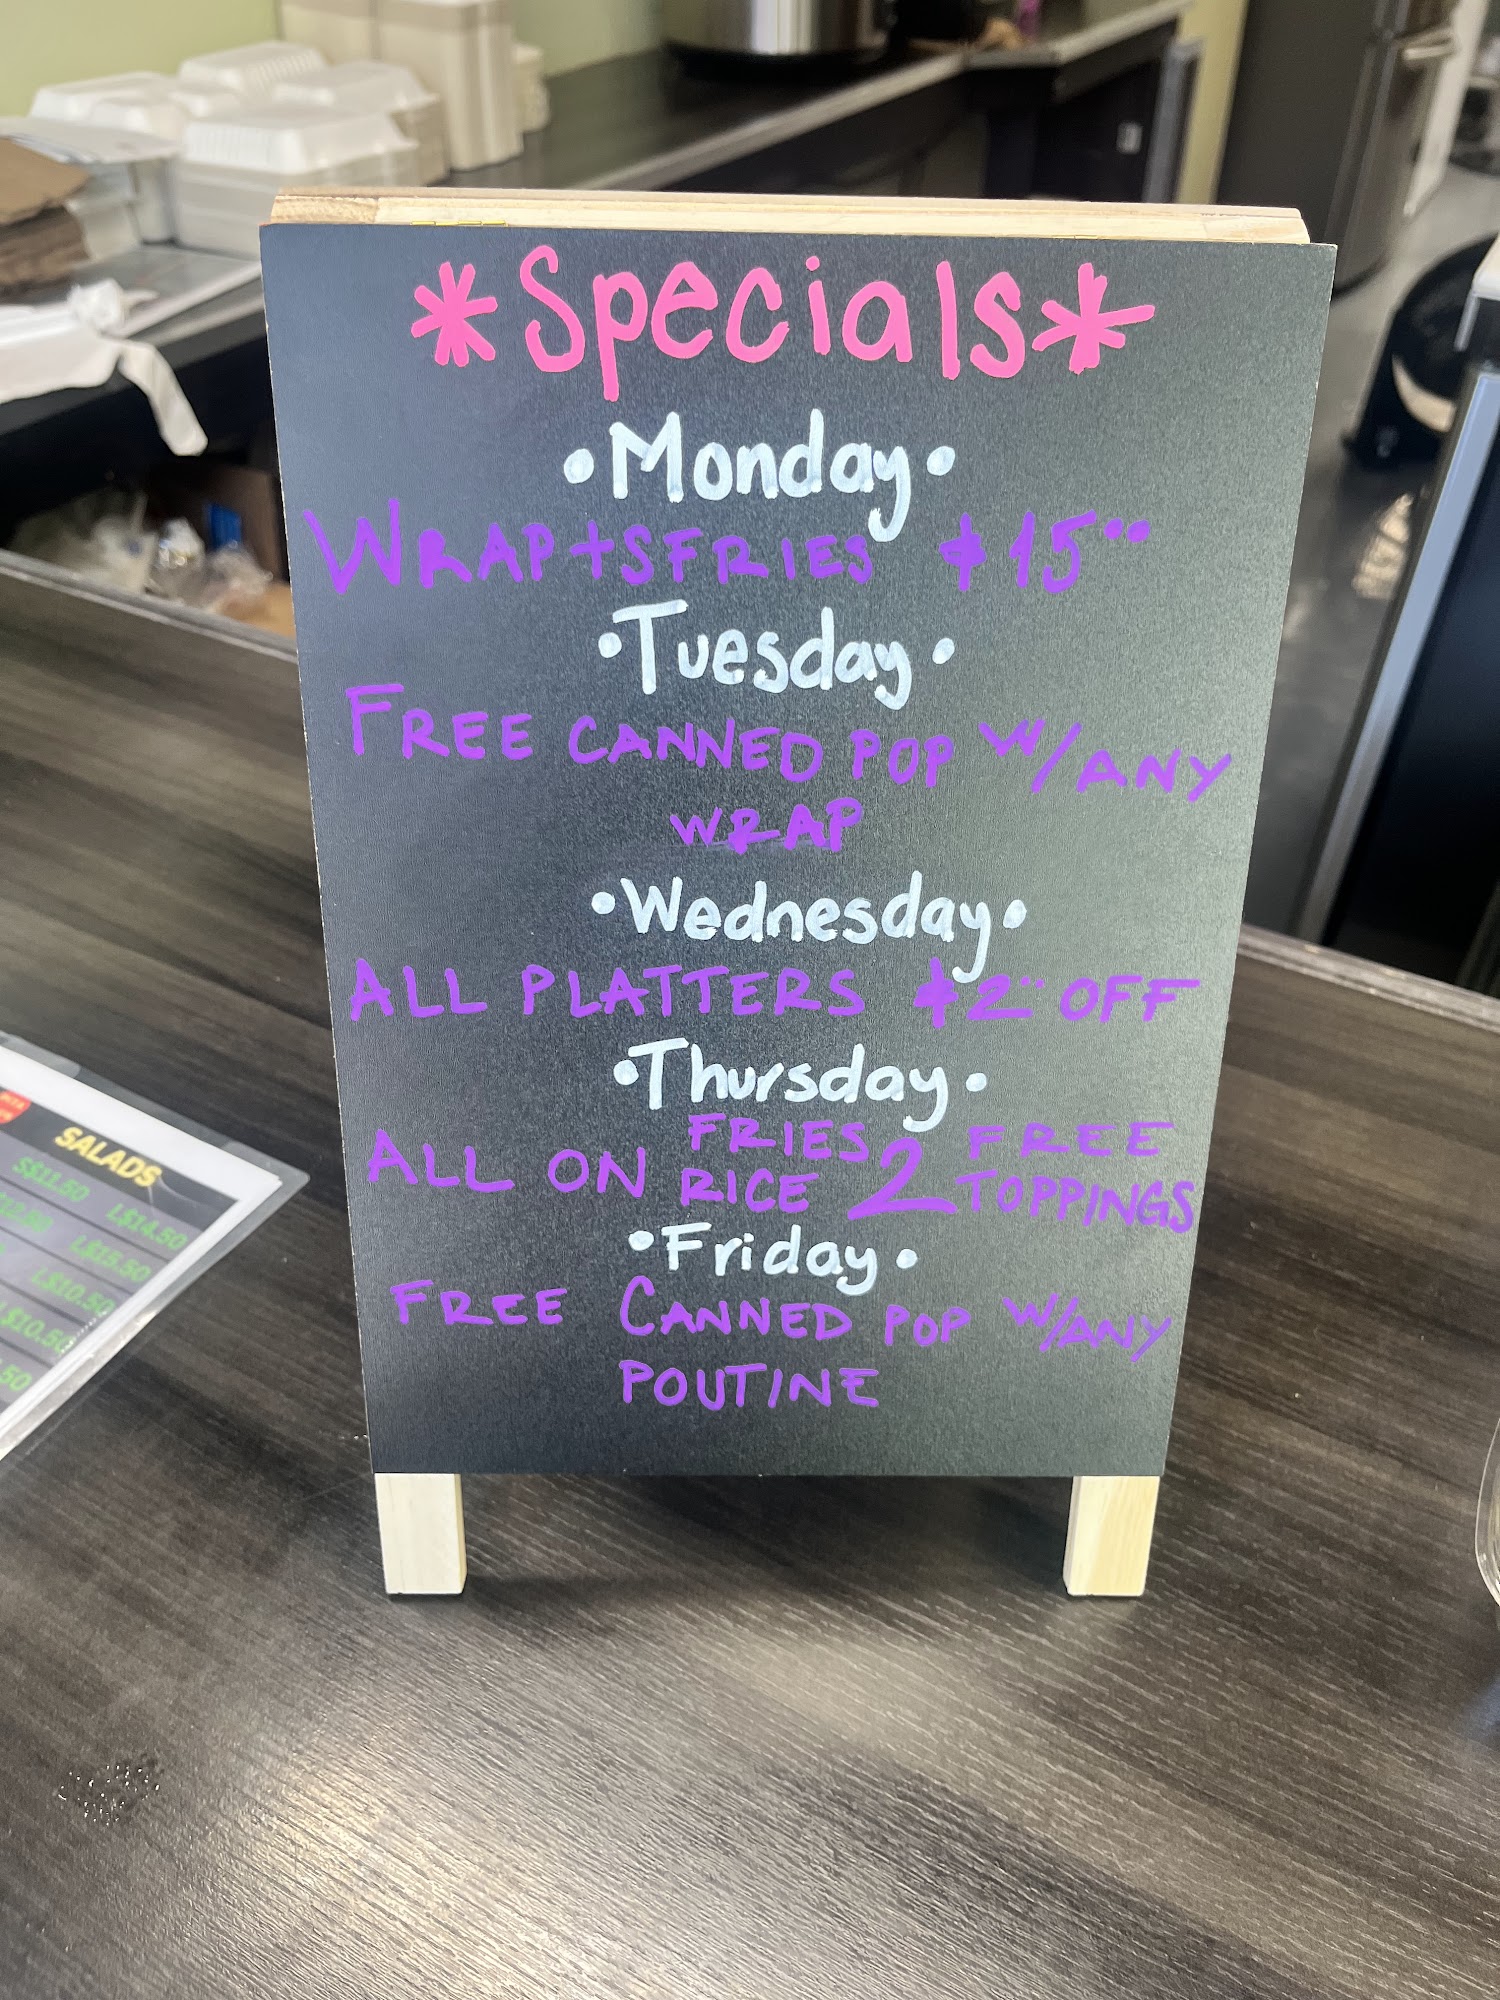 *Specials*
•Monday•
WRAP+SFRIES $15°°
•Tuesday•
FREE CANNED POP W/ANY
WRAP
•Wednesday•
ALL PLATTERS $2°° OFF
•Thursday•
ALL ON FRIES 2 FREE
RICE TOPPINGS
•Friday•
FREE CANNED POP W/ANY
POUTINE
SALADS
S$11.50 L$14.50
L$15.50
L$10.50
L$10.50